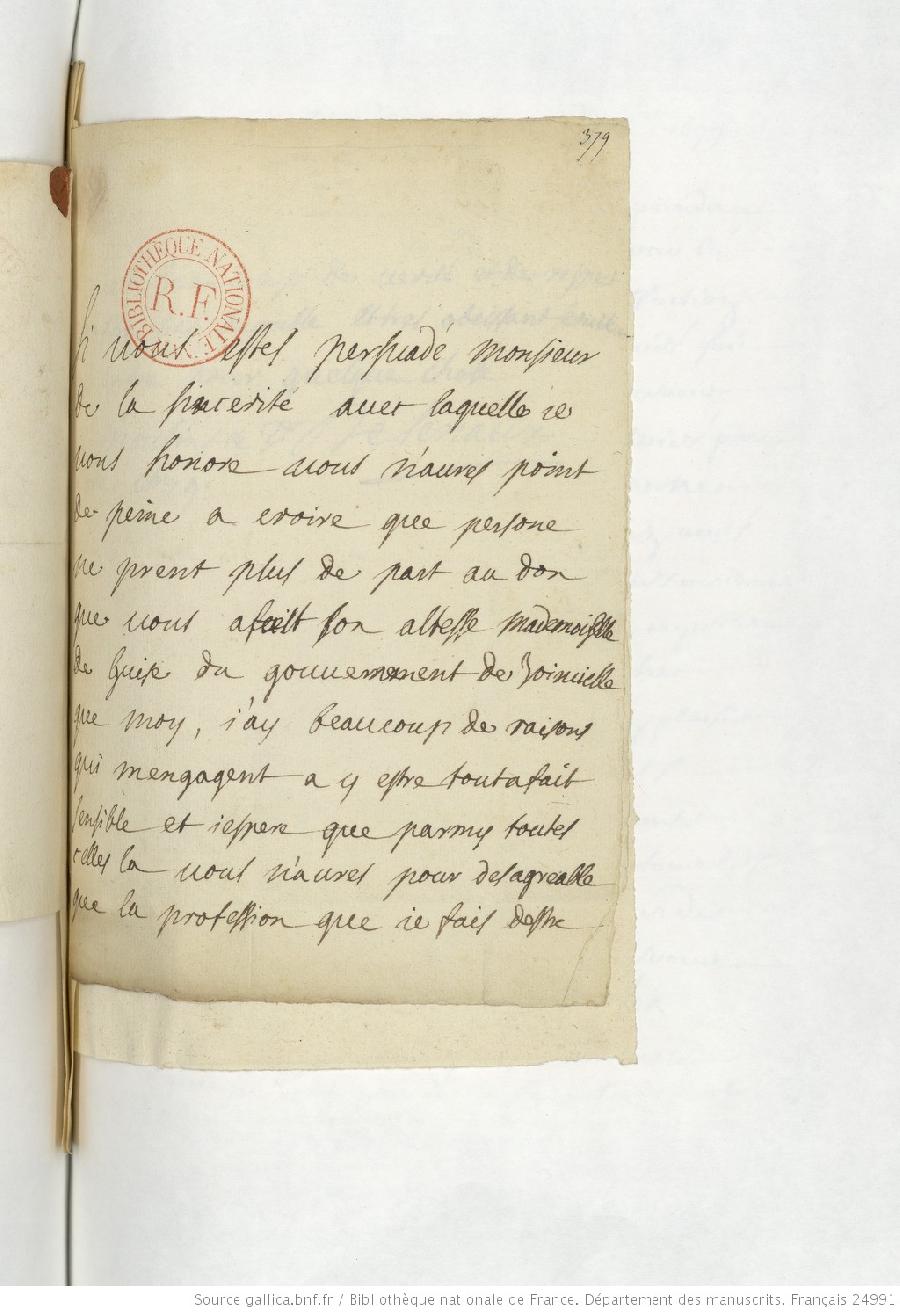 379
BIBLIOTHÈQUE NATIONALE
R.F.
Si vous estes persuadé monsieur
de la sincerité avec laquelle ie
vous honore vous n'aures point
de peine a croire que persone
ne prent plus de part au don
que vous a fait son altesse mademoiselle
de Guise du gouvernement de Joinville
que moy, i'ay beaucoup de raisons
qui m'engagent a y estre toutafait
sensible et iespere que parmy toutes
celles la vous n'aures pour desagreable
que la profession que ie fais destre
Source gallica.bnf.fr / Bibliothèque nationale de France. Département des manuscrits. Français 24991